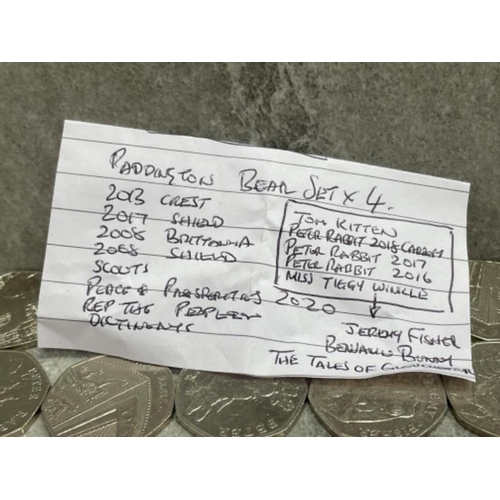 PADDINGTON BEAR SET x 4.
2013 CREST
2017 SHIELD
2008 BRITTANNIA
2008 SHIELD
SCOUTS
PEACE & PROSPERITIES
2020
REP THE PEOPLE
TOM KITTEN
PETER RABBIT 2018
PETER RABBIT 2017
PETER RABBIT 2016
MISS TIGGY WINKLE
JEREMY FISHER
BENJAMIN BUNNY
THE TALES OF GLOUCESTER